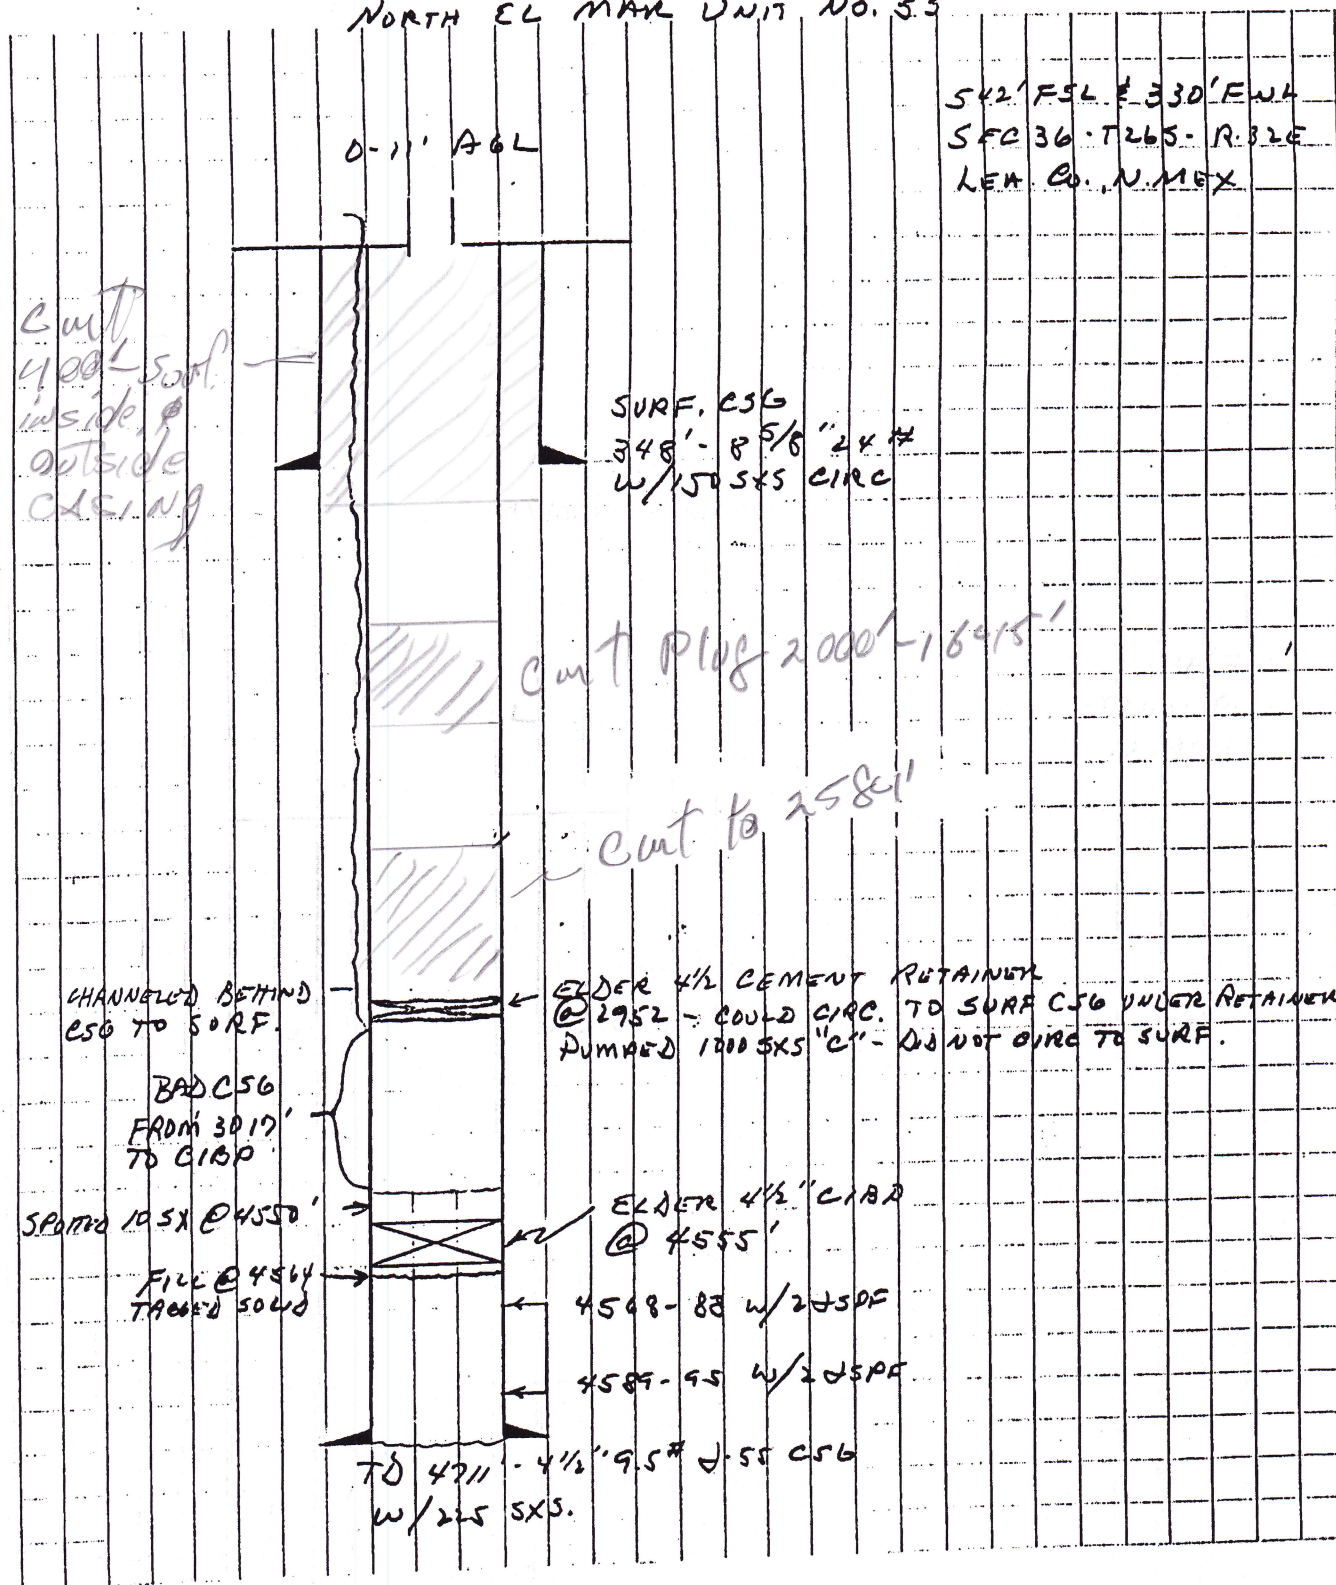 NORTH EL MAR UNIT NO. 53
542' FSL & 330' FWL
SEC 36 - T26S - R.32E
LEA. CO., N. MEX
0-11' AGL
Cmt
400'-Surf.
inside &
outside
CASING
SURF. CSG
348' - 8 5/8" 24#
W/150 SXS CIRC
Cmt Plug 2000'-1645'
Cmt to 2584'
CHANNELED BEHIND
CSG TO SURF.
ELDER 4½ CEMENT RETAINER
@ 2952 - COULD CIRC. TO SURF CSG UNDER RETAINER
PUMPED 1000 SXS "C" - DID NOT CIRC TO SURF.
BAD CSG
FROM 3017'
TO CIBP
SPOTTED 10 SX @ 4550'
ELDER 4½" CIBP
@ 4555'
FILL @ 4564
TAGGED SOLID
4568-88 w/2 JSPF
4589-95 w/2 JSPF
TD 4711' - 4½" 9.5# J-55 CSG
w/225 SXS.